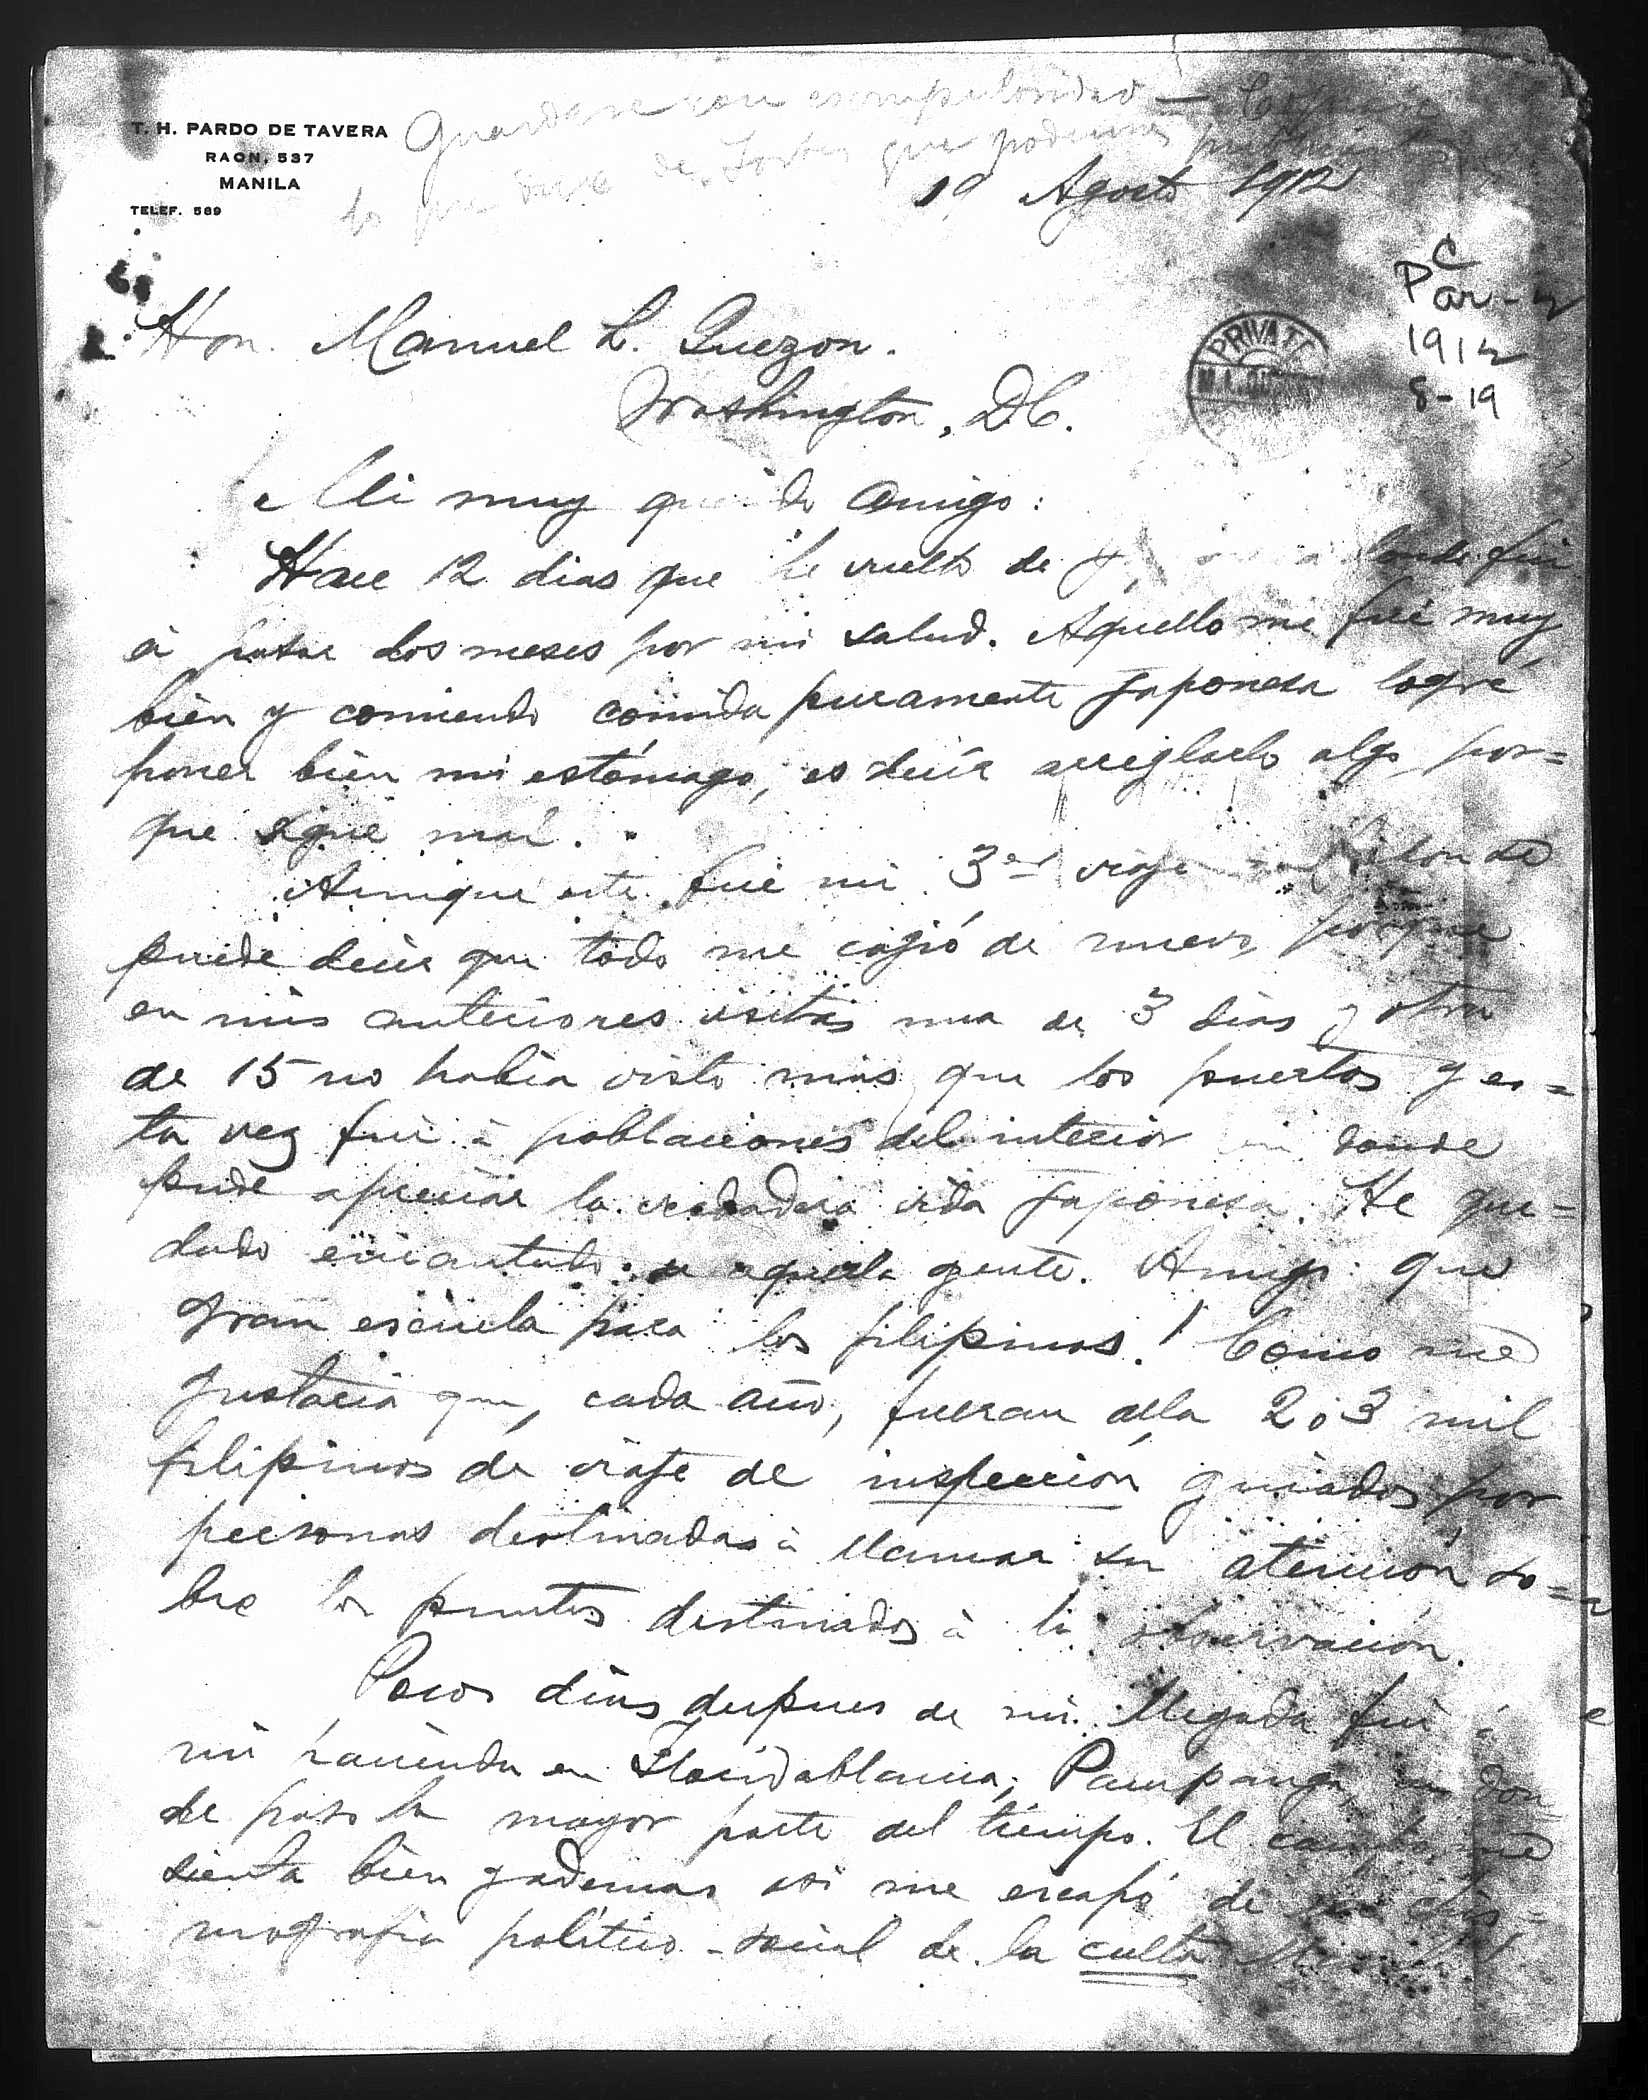 T. H. PARDO DE TAVERA
RAON, 537
MANILA
TELEF. 569
Guardese con escrupulosidad —
lo que dice de Forbes que podemos
19 Agosto 1912
C
Par-z
1912
8-19
PRIVATE
Hon. Manuel L. Quezon.
Washington, D.C.
Mi muy querido amigo:
Hace 12 dias que he vuelto de donde fui
á pasar dos meses por mi salud. Aquello me fué muy
bien y comiendo comida puramente japonesa logré
poner bien mi estómago, es decir arreglarlo algo por=
que sigue mal.
Aunque este fué mi 3er viaje
puede decir que todo me cogió de nuevo, porque
en mis anteriores visitas una de 3 dias y otra
de 15 no habia visto mas que los puertos y es=
ta vez fui á poblaciones del interior en donde
pude apreciar la verdadera vida japonesa. He que=
dado encantado de aquella gente. Amigo: que
gran escuela para los filipinos! Como me
gustaria que, cada año, fueran alla 2 ó 3 mil
filipinos de viaje de inspección guiados por
personas destinadas á llamar su atención so=
bre los puntos destinados á la observación.
Pocos dias despues de mi llegada fui á
mi hacienda en Floridablanca, Pampanga, en don
de paso la mayor parte del tiempo. El campo me
sienta bien y ademas asi me escapo de la chis=
mografia politico-social de la culta Manila.